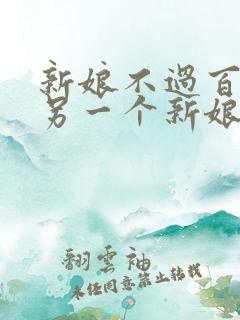 新娘不過百
另一个新娘
翻雲袖
未经同意禁止转载